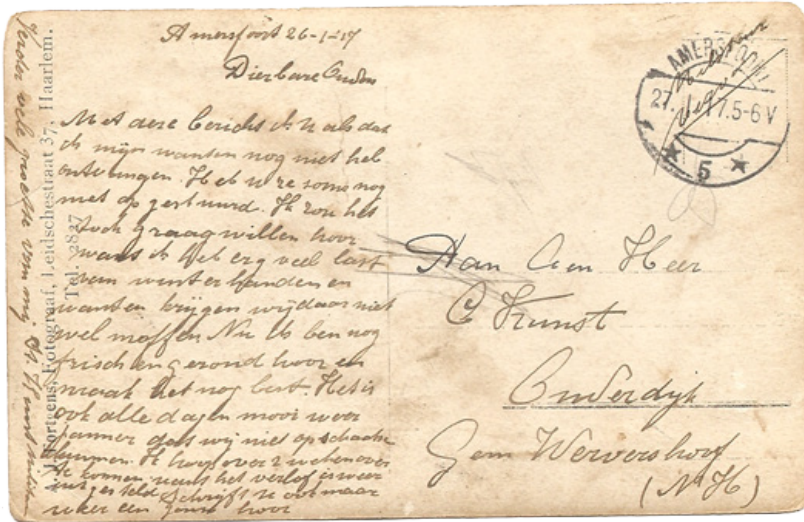 Amersfoort 26-1-17
Dierbare Ouders
Met deze bericht ik u als dat
ik mijn wanten nog niet heb
ontvangen. Heb u ze soms nog
niet op gestuurd. Ik zou het
toch graag willen hoor
want ik heb erg veel last
van winterhanden en
wanten krijgen wij daar niet
wel moffen. Nu ik ben nog
frisch en gezond hoor en
maak het nog best. Het is
ook alle dagen mooi weer
jammer dat wij niet op schaatse
kunnen. Ik hoop over 2 weken over
te komen want het verlof is weer
Schrijft ze ook maar
zeker een hoor
Verder vele groeten van mij
A. J. Fortgens, Fotograaf, Leidschestraat 37, Haarlem.
Tel. 2827
AMERSFOORT
27. 17.5-6 V
5
Aan den Heer
C Kunst
Onderdijk
Gem Wervershoof
(N H)